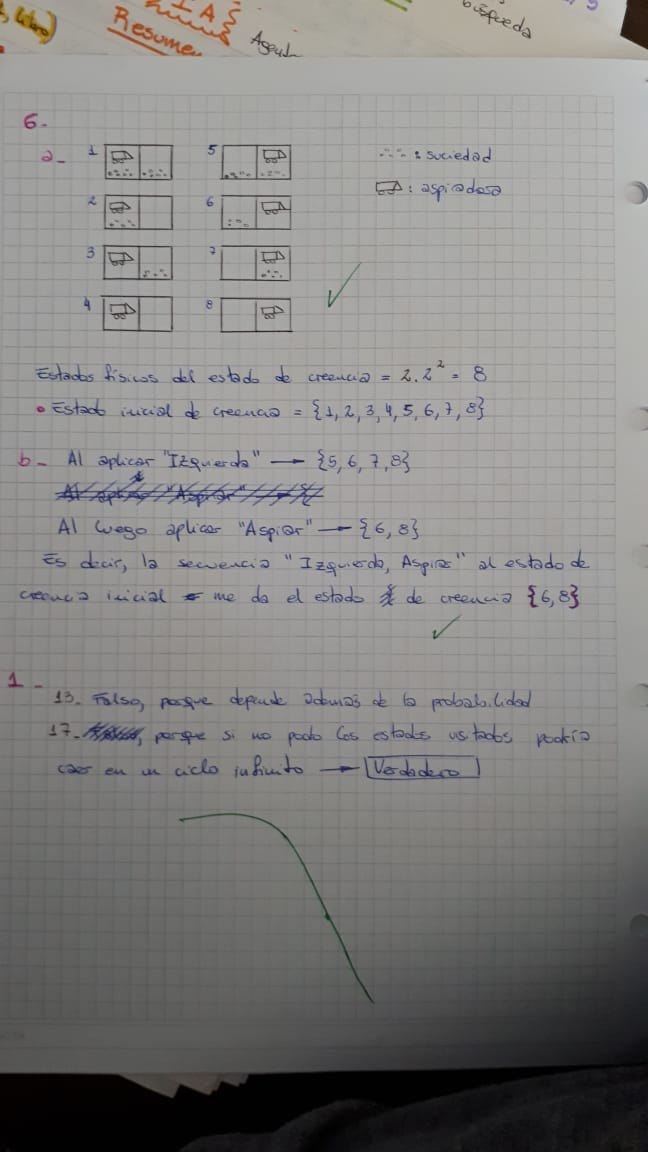 libro)
I A
Resumen
búsqueda
6.
a- 1 5 : suciedad
2 6 : aspiradora
3 7
4 8
Estados físicos del estado de creencia = 2.2² = 8
• Estado inicial de creencia = {1, 2, 3, 4, 5, 6, 7, 8}
b- Al aplicar "Izquierda" → {5, 6, 7, 8}
Al luego aplicar "Aspirar" → {6, 8}
Es decir, la secuencia "Izquierda, Aspirar" al estado de
creencia inicial me da el estado de creencia {6, 8}
1-
13. Falso, porque depende además de la probabilidad
17. , porque si no podo los estados visitados podría
caer en un ciclo infinito → Verdadero